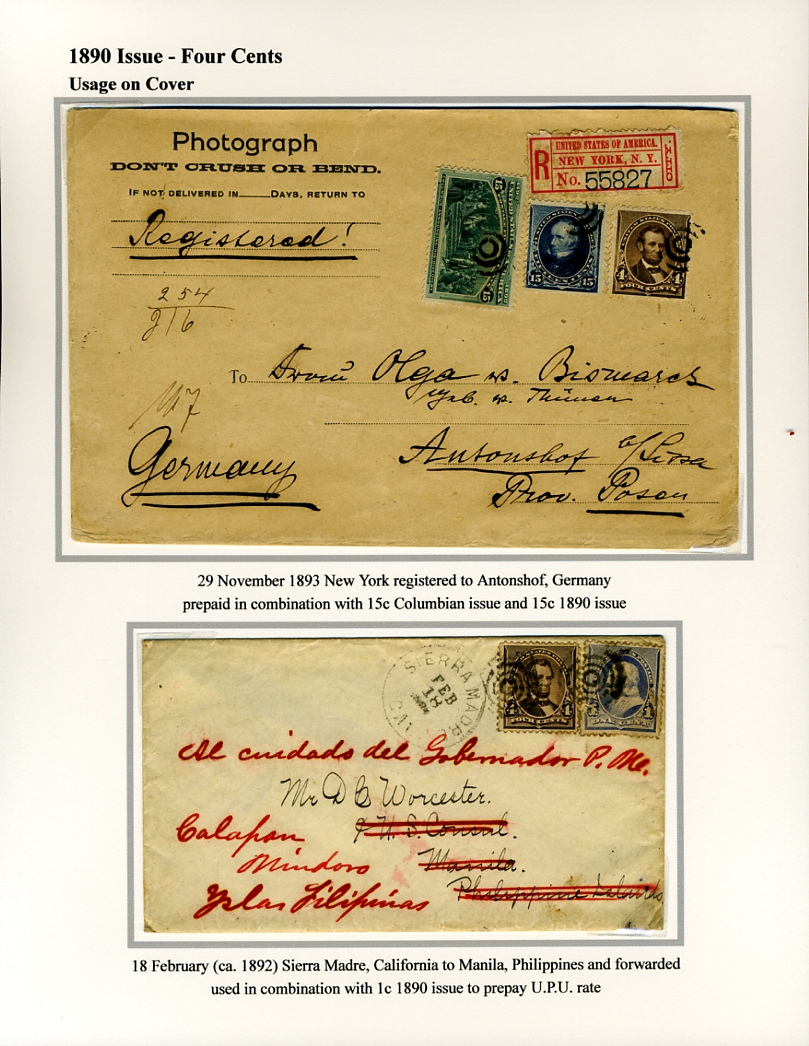 1890 Issue - Four Cents
Usage on Cover
Photograph
DON'T CRUSH OR BEND.
IF NOT DELIVERED IN DAYS, RETURN TO
Registered!
254
216
UNITED STATES OF AMERICA.
R NEW YORK, N. Y.
No. 55827
15 15
15 15
4 4
FOUR CENTS
To Frau Olga v. Bismarck
geb. v. Thünen
Antonshof b/Lissa
Prov. Posen
Germany
29 November 1893 New York registered to Antonshof, Germany
prepaid in combination with 15c Columbian issue and 15c 1890 issue
SIERRA MADRE
FEB
18
CAL
4 4
FOUR CENTS
ONE CENT 1
Al cuidado del Gobernador P. M.
Mr D C Worcester.
Calapan
U. S. Consul.
Mindoro
Manila.
Philippine Islands
Yslas Filipinas
18 February (ca. 1892) Sierra Madre, California to Manila, Philippines and forwarded
used in combination with 1c 1890 issue to prepay U.P.U. rate